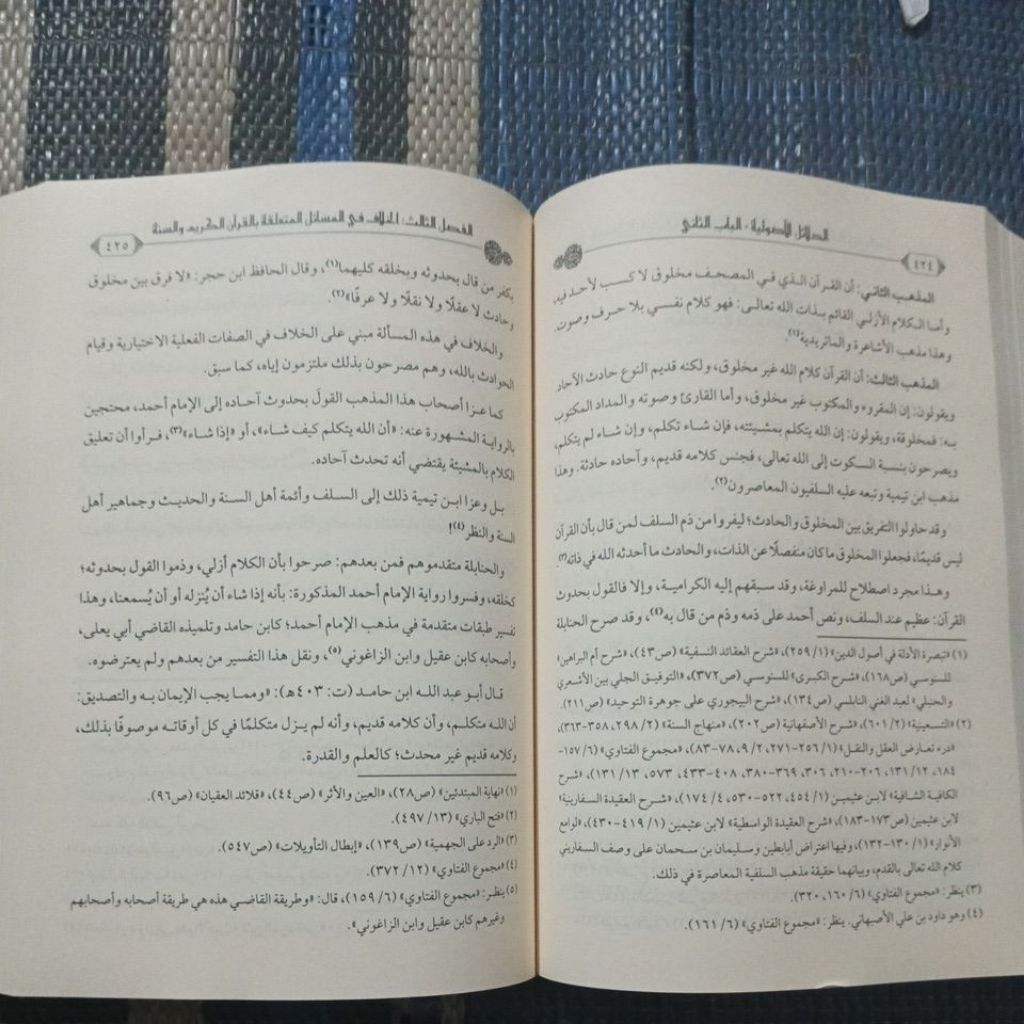 الدلائل الأصولية - الباب الثاني
٤٢٤
المذهب الثاني: أن القرآن الذي في المصحف مخلوق لا كسب لأحد فيه،
وأما الكلام الأزلي القائم بذات الله تعالى: فهو كلام نفسي بلا حرف وصوت.
وهذا مذهب الأشاعرة والماتريدية(١).
المذهب الثالث: أن القرآن كلام الله غير مخلوق، ولكنه قديم النوع حادث الآحاد
ويقولون: إن المقروء والمكتوب غير مخلوق، وأما القارئ وصوته والمداد المكتوب
به: فمخلوقة، ويقولون: إن الله يتكلم بمشيئته، فإن شاء تكلم، وإن شاء لم يتكلم،
ويصرحون بنسبة السكوت إلى الله تعالى، فجنس كلامه قديم، وآحاده حادثة. وهذا
مذهب ابن تيمية وتبعه عليه السلفيون المعاصرون(٢).
وقد حاولوا التفريق بين المخلوق والحادث؛ ليفروا من ذم السلف لمن قال بأن القرآن
ليس قديمًا، فجعلوا المخلوق ما كان منفصلًا عن الذات، والحادث ما أحدثه الله في ذاته(٣).
وهذا مجرد اصطلاح للمراوغة، وقد سبقهم إليه الكرامية، وإلا فالقول بحدوث
القرآن: عظيم عند السلف، ونص أحمد على ذمه وذم من قال به(٤)، وقد صرح الحنابلة
(١) «تبصرة الأدلة في أصول الدين» (١/ ٢٥٩)، «شرح العقائد النسفية» (ص٤٣)، «شرح أم البراهين»
للسنوسي (ص١٦٨)، «شرح الكبرى» للسنوسي (ص٣٧٢)، «التوفيق الجلي بين الأشعري
والحنبلي» لعبد الغني النابلسي (ص١٣٤)، «شرح البيجوري على جوهرة التوحيد» (ص٢١١).
(٢) «التسعينية» (٢/ ٦٠١)، «شرح الأصفهانية (ص٢٠٢)، «منهاج السنة» (٢/ ٢٩٨، ٣٥٨-٣١٣)،
«درء تعارض العقل والنقل» (١/ ٢٥٦-٢٧١، ٢/ ٩، ٧٨-٨٣)، «مجموع الفتاوي» (٦/ ١٥٧-
١٨٤، ١٢/ ١٣١، ٢٠٦-٢١٠، ٣٠٦، ٣٦٩-٣٨٠، ٤٠٨-٤٣٣، ٥٧٣، ١٣/ ١٣١)، «شرح
الكافية الشافية» لابن عثيمين (١/ ٤٥٤، ٥٢٢-٥٣٠، ٤/ ١٧٤)، «شرح العقيدة السفارينية»
لابن عثيمين (ص١٧٣-١٨٣)، «شرح العقيدة الواسطية» لابن عثيمين (١/ ٤١٩-٤٣٠)، «لوامع
الأنوار» (١/ ١٣٠-١٣٢)، وفيها اعتراض أبابطين وسليمان بن سحمان على وصف السفاريني
كلام الله تعالى بالقدم، وبيانهما حقيقة مذهب السلفية المعاصرة في ذلك.
(٣) ينظر: «مجموع الفتاوي» (٦/ ١٦٠، ٣٢٠).
(٤) وهو داود بن علي الأصبهاني. ينظر: «مجموع الفتاوي» (٦/ ١٦١).
الفصل الثالث: الخلاف في المسائل المتعلقة بالقرآن الكريم والسنة
٤٢٥
بكفر من قال بحدوثه وبخلقه كليهما(١)، وقال الحافظ ابن حجر: «لا فرق بين مخلوق
وحادث لا عقلًا ولا نقلًا ولا عرفًا»(٢).
والخلاف في هذه المسألة مبني على الخلاف في الصفات الفعلية الاختيارية وقيام
الحوادث بالله، وهم مصرحون بذلك ملتزمون إياه، كما سبق.
كما عزا أصحاب هذا المذهب القولَ بحدوث آحاده إلى الإمام أحمد، محتجين
بالرواية المشهورة عنه: «أن الله يتكلم كيف شاء»، أو «إذا شاء»(٣)، فرأوا أن تعليق
الكلام بالمشيئة يقتضي أنه تحدث آحاده.
بل وعزا ابن تيمية ذلك إلى السلف وأئمة أهل السنة والحديث وجماهير أهل
السنة والنظر(٤)!
والحنابلة متقدموهم فمن بعدهم: صرحوا بأن الكلام أزلي، وذموا القول بحدوثه؛
كخلقه، وفسروا رواية الإمام أحمد المذكورة: بأنه إذا شاء أن يُنزله أو أن يُسمعنا، وهذا
تفسير طبقات متقدمة في مذهب الإمام أحمد؛ كابن حامد وتلميذه القاضي أبي يعلى،
وأصحابه كابن عقيل وابن الزاغوني(٥)، ونقل هذا التفسير من بعدهم ولم يعترضوه.
قال أبو عبد الله ابن حامد (ت: ٤٠٣هـ): «ومما يجب الإيمان به والتصديق:
أن الله متكلم، وأن كلامه قديم، وأنه لم يزل متكلمًا في كل أوقاته موصوفًا بذلك،
وكلامه قديم غير محدث؛ كالعلم والقدرة.
(١) «نهاية المبتدئين» (ص٢٨)، «العين والأثر» (ص٤٤)، «قلائد العقيان» (ص٩٦).
(٢) «فتح الباري» (١٣/ ٤٩٧).
(٣) «الرد على الجهمية» (ص١٣٩)، «إبطال التأويلات» (ص٥٤٧).
(٤) «مجموع الفتاوي» (١٢/ ٣٧٢).
(٥) ينظر: «مجموع الفتاوي» (٦/ ١٥٩)، قال: «وطريقة القاضي هذه هي طريقة أصحابه وأصحابهم
وغيرهم كابن عقيل وابن الزاغوني».